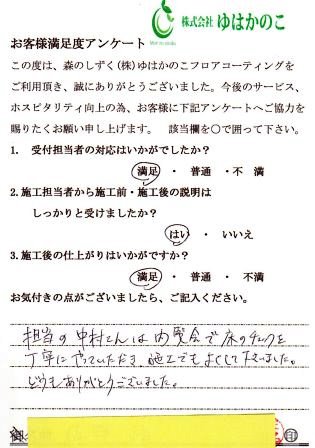 株式会社 ゆはかのこ
お客様満足度アンケート
この度は、森のしずく(株)ゆはかのこフロアコーティングを
ご利用頂き、誠にありがとうございました。今後のサービス、
ホスピタリティ向上の為、お客様に下記アンケートへご協力を
賜りたくお願い申し上げます。 該当欄を〇で囲って下さい。
1. 受付担当者の対応はいかがでしたか？
満足 ・ 普通 ・不 満
2. 施工担当者から施工前・施工後の説明は
しっかりと受けましたか？
はい ・ いいえ
3. 施工後の仕上がりはいかがですか？
満足 ・ 普通 ・ 不満
お気付きの点がございましたら、ご記入ください。
担当の中村さんは内覧会で床のチェックを
丁寧にやっていただき、施工でもよくして下さいました。
どうもありがとうございました。
印